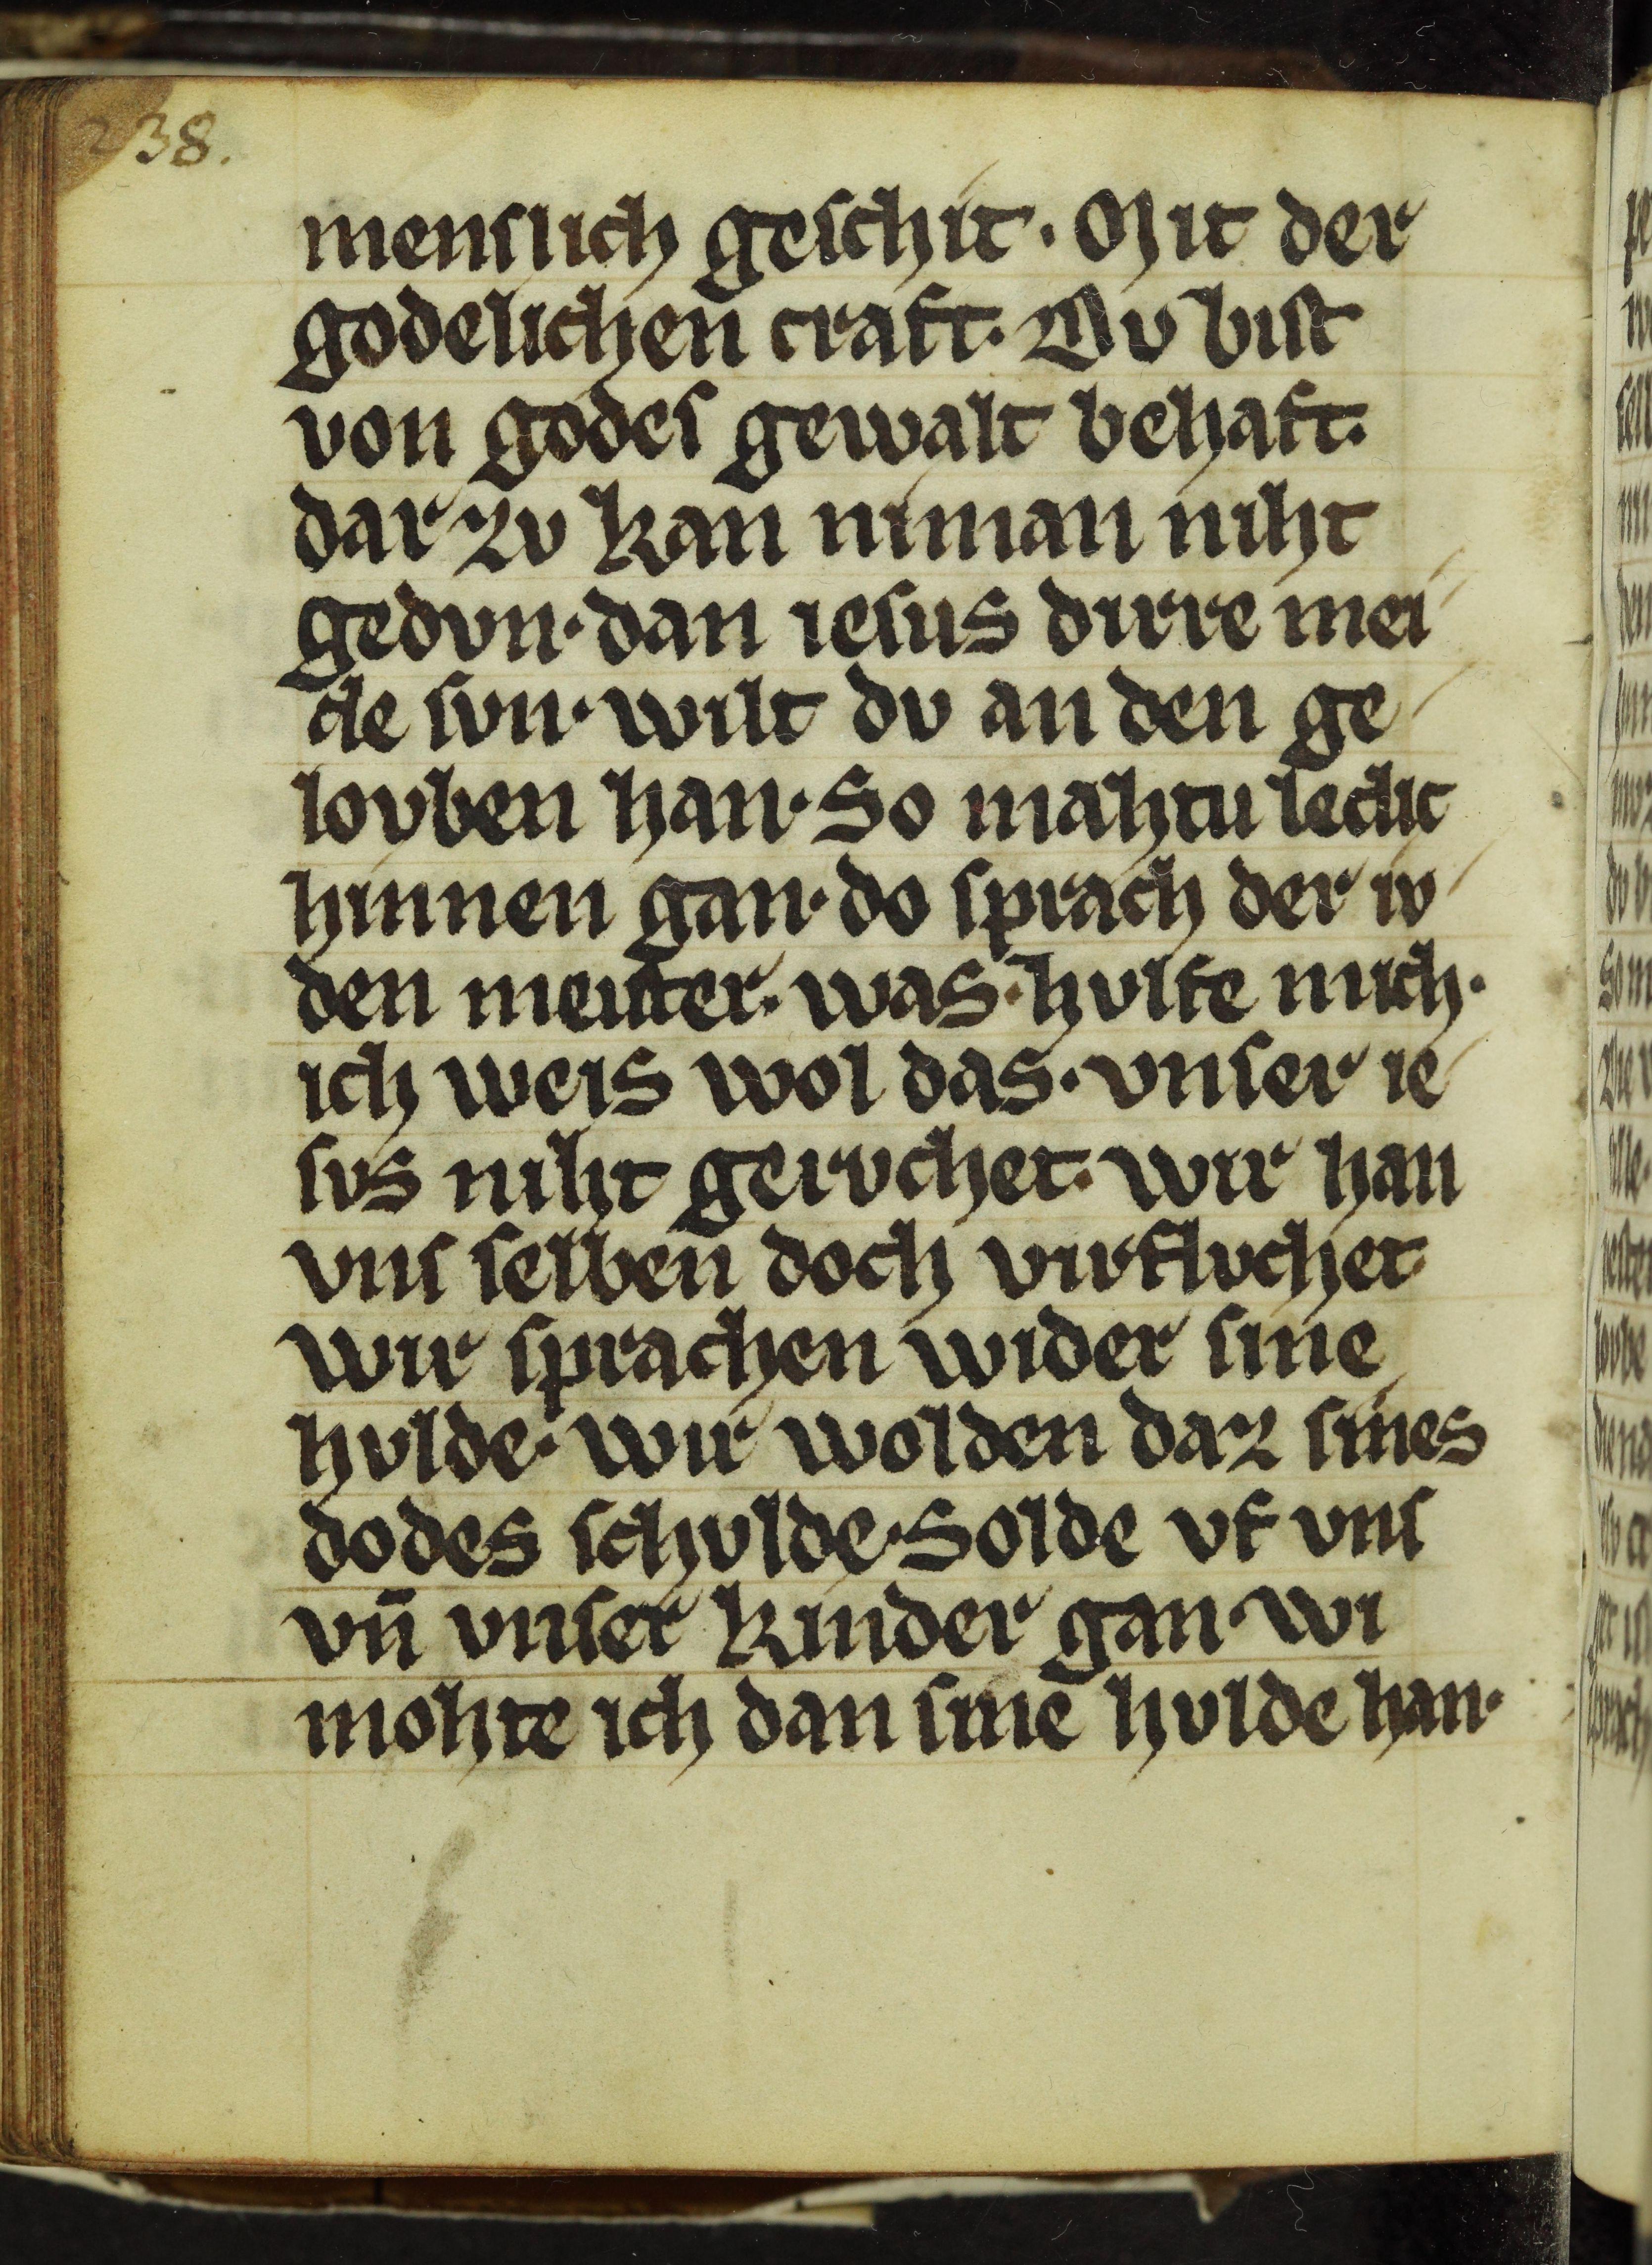 238.
menslich geschit. Mit der
godelichen craft. Dv bist
von godes gewalt behaft.
dar zv kan niman niht
gedvn. dan iesus dirre mei
de svn. wilt dv an den ge
lovben han. So mahtu ledic
hinnen gan. do sprach der iv
den meister. was. hvlfe mich.
ich weis wol das. vnser ie
svs niht gervchet. wir han
vns selben doch virflvchet.
wir sprachen wider sine
hvlde. wir wolden daz sines
dodes schvlde. Solde vf vns
vn̄ vnser kinder gan. wi
mohte ich dan sine hvlde han.